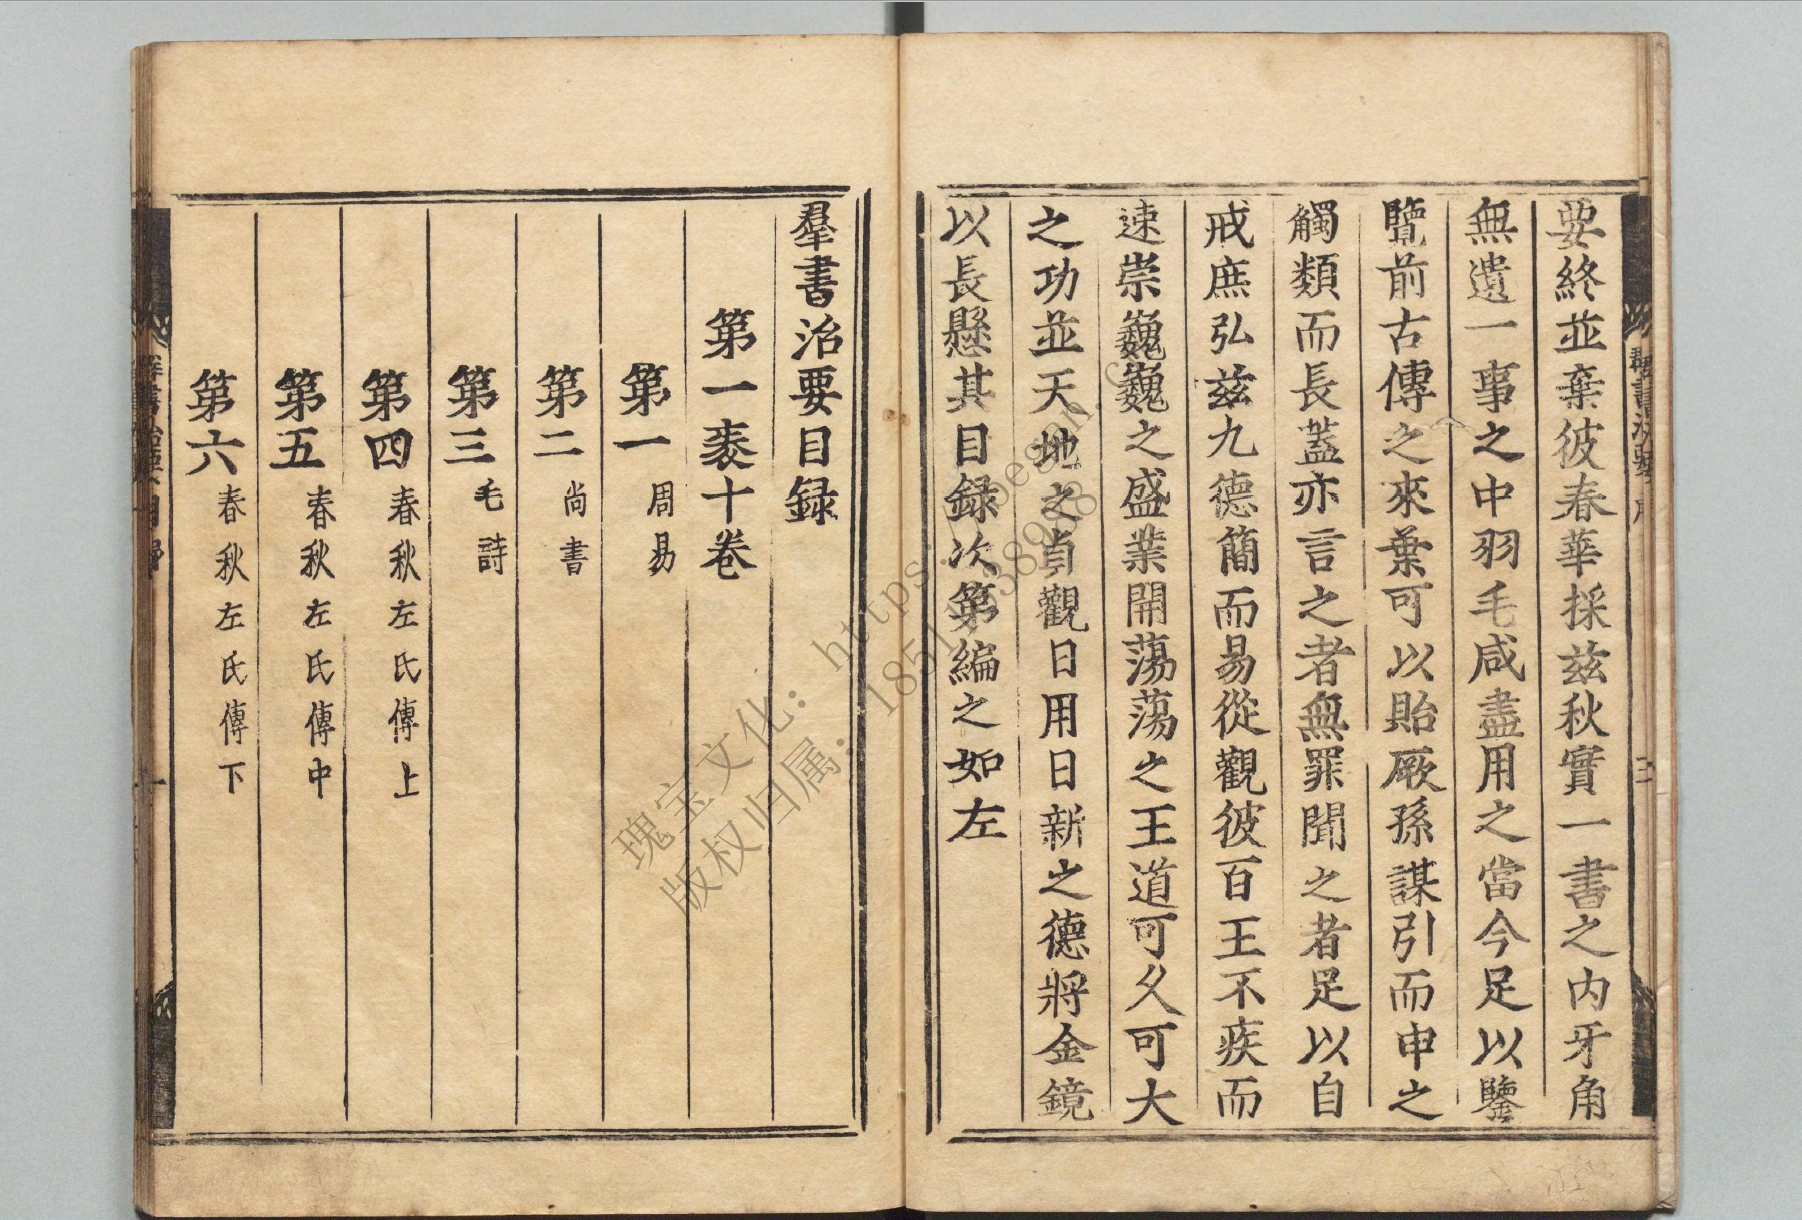 要終並棄彼春華採茲秋實一書之內牙角
無遺一事之中羽毛咸盡用之當今足以鑒
覽前古傳之來葉可以貽厥孫謀引而申之
觸類而長蓋亦言之者無罪聞之者足以自
戒庶弘茲九德簡而易從觀彼百王不疾而
速崇巍巍之盛業開蕩蕩之王道可久可大
之功並天地之貞觀日用日新之德將金鏡
以長懸其目録次第編之如左
羣書治要目録
第一袠十卷
第一 周易
第二 尚書
第三 毛詩
第四 春秋左氏傳上
第五 春秋左氏傳中
第六 春秋左氏傳下
瑰宝文化:https:
版权归属: